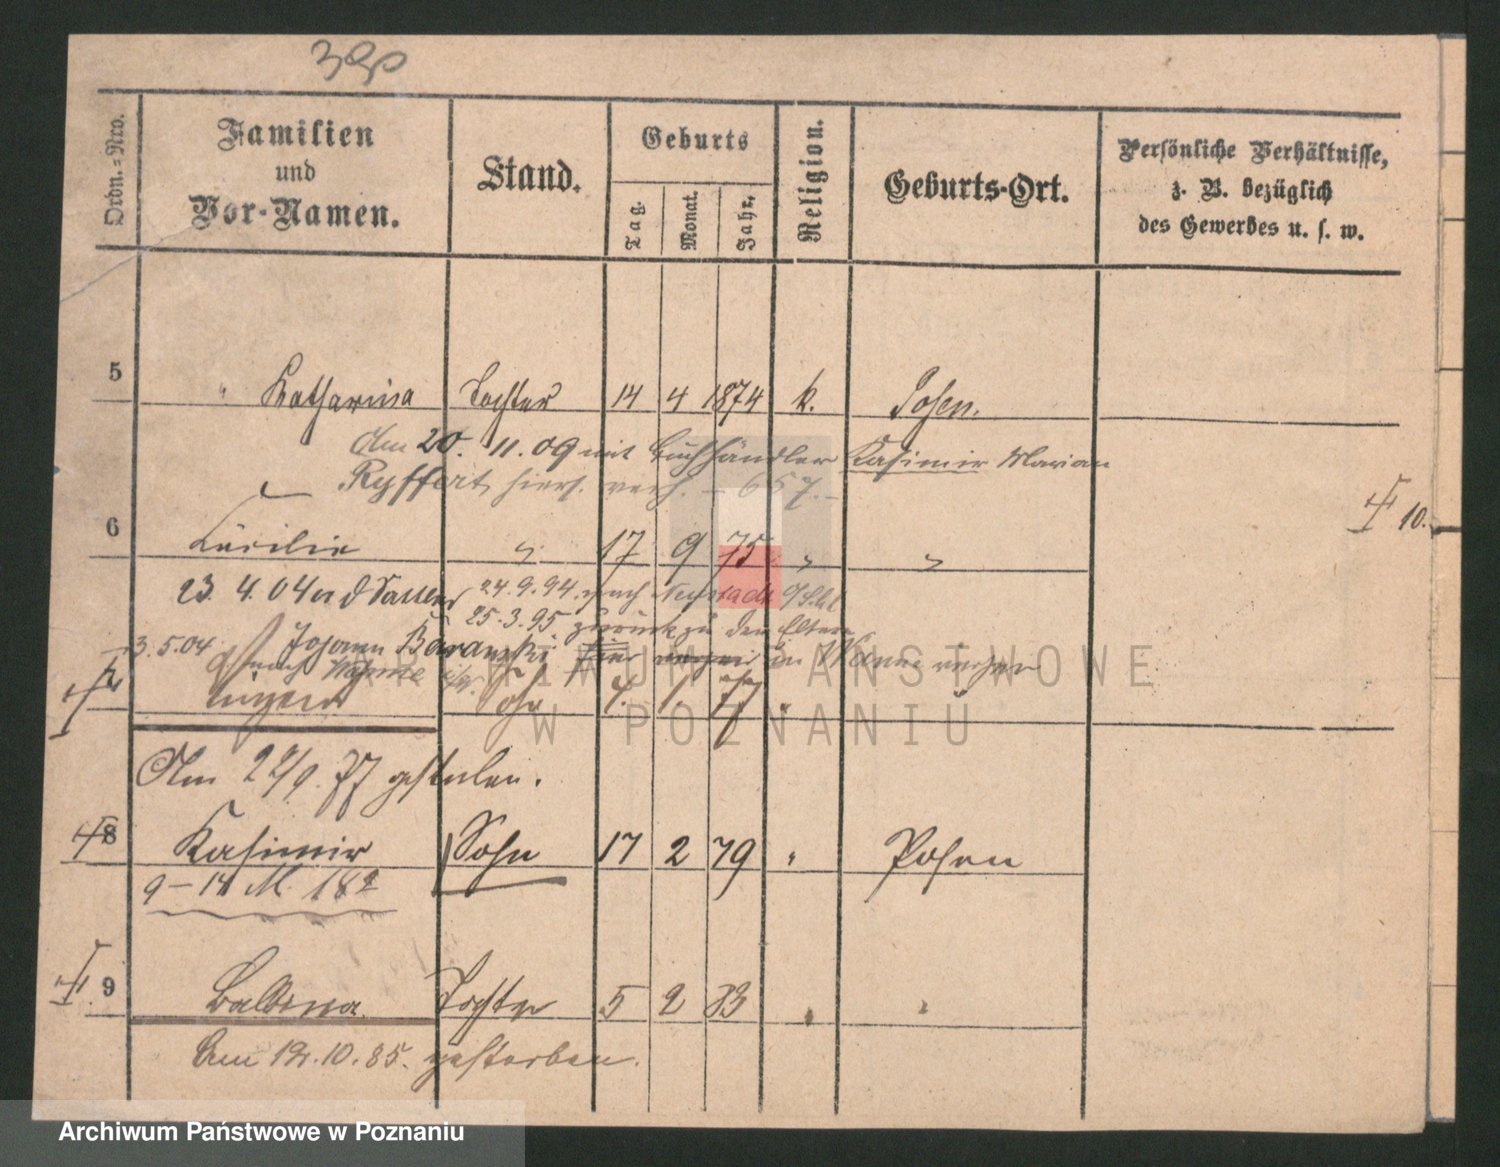 Ordn.=Nro.
Familien
und
Vor-Namen.
Stand.
Geburts
Tag.
Monat.
Jahr.
Religion.
Geburts-Ort.
Persönliche Verhältnisse,
z. B. bezüglich
des Gewerbes u. s. w.
5 " Katharina Tochter 14 4 1874 k. Posen.
Am 20. 11. 09 mit Buchhändler Kasimir Marian
Ryffert, hiers. verh. – 657. –
10.
6 Cäcilie " 17 9 75 " "
23. 4. 04 24.9.94. nach Neustadt
25.3.95. zurück zu den Eltern
3.5.04 Johann Baranski hier in
nach
7 Eugen 7. 1. 77 "
Am 22/9. 77 gestorben.
8 Kasimir Sohn 17 2 79 " Posen
9 – 14 M. 182
9 Balbina Tochter 5 2 83 " "
Am 12.10.85. gestorben.
ARCHIWUM PAŃSTWOWE
W POZNANIU
Archiwum Państwowe w Poznaniu